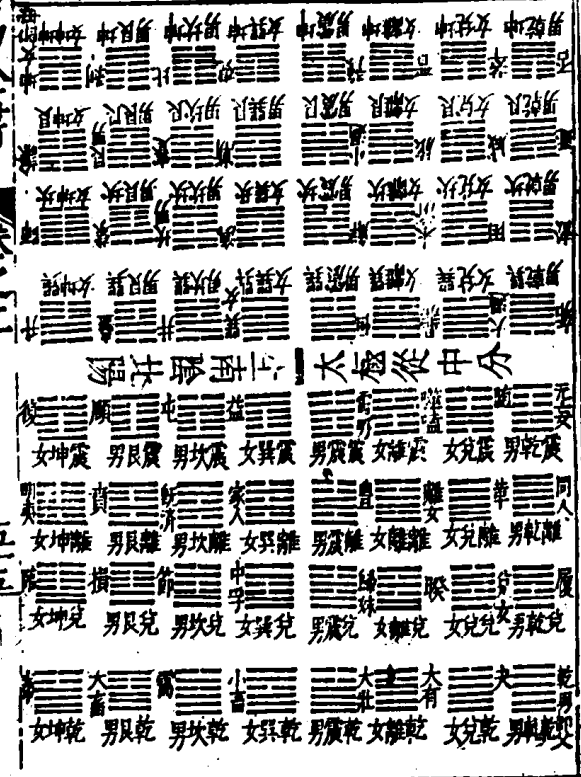 女坤坤 男艮坤 男坎坤 女巽坤 男震坤 女離坤 女兌坤 男乾坤
剝 比 觀 豫 晉 萃 否
女坤艮 男艮艮 男坎艮 女巽艮 男震艮 女離艮 女兌艮 男乾艮
謙 艮男 蹇 漸 小過 旅 咸
女坤坎 男艮坎 男坎坎 女巽坎 男震坎 女離坎 女兌坎 男乾坎
師 蒙 坎男 渙 解 未济 困 訟
女坤巽 男艮巽 男坎巽 女巽巽 男震巽 女離巽 女兌巽 男乾巽
升 蠱 井 巽女 恒 鼎 大過 姤
太極從中分
復 頤 屯 益 震男 噬嗑 隨 无妄
女坤震 男艮震 男坎震 女巽震 男震震 女離震 女兌震 男乾震
明夷 賁 既济 家人 豐 離女 革 同人
女坤離 男艮離 男坎離 女巽離 男震離 女離離 女兌離 男乾離
臨 損 節 中孚 歸妹 睽 兌女 履
女坤兌 男艮兌 男坎兌 女巽兌 男震兌 女離兌 女兌兌 男乾兌
泰 大畜 需 小畜 大壯 大有 夬 乾男
女坤乾 男艮乾 男坎乾 女巽乾 男震乾 女離乾 女兌乾 男乾乾